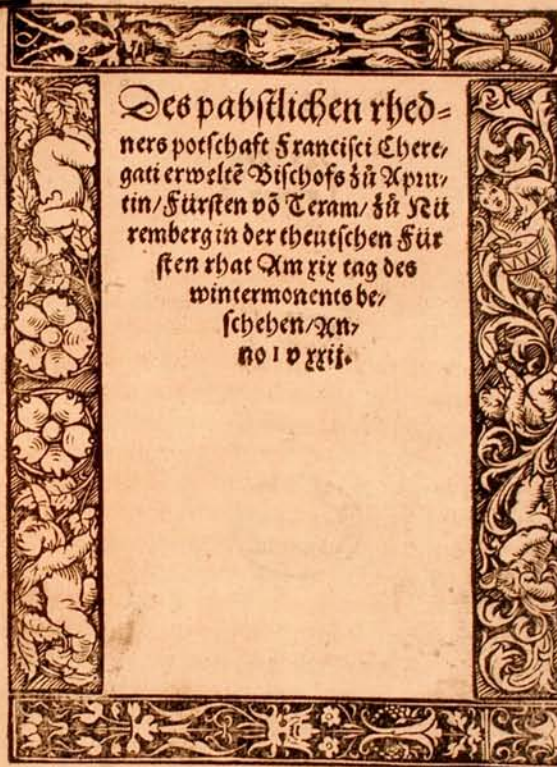 Des pabstlichen rhed⸗
ners potschaft Francisci Chere⸗
gati erweltē Bischofs zů Apru⸗
tin/ Fürsten vō Teram/ zů Nü
remberg in der theutschen Für
sten rhat Am xix tag des
wintermonents be⸗
schehen/ An⸗
no I v xxij.